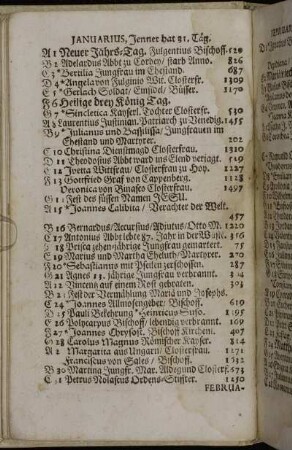 JANUARIUS, Jenner hat 31. Täg.
A 1 Neuer Jahrs-Tag. Fulgentius Bischoff. 529
B 2 Adelardus Abbt zu Corbey / starb Anno. 826
C 3 * Bertilia Jungfrau im Ehestand. 687
D 4 * Angela von Fulginio Wit. Closterfr. 1309
E 5 * Gerlach Soldat / Einsidel / Büsser. 1170
F 6 Heilige drey König Tag.
G 7 * Sincletica Kayserl. Tochter Closterfr. 530
A 8 Laurentius Justinian. Patriarch zu Venedig. 1455
B 9 * Julianus und Bassilissa / Jungfrauen im
Ehestand und Martyrer. 202
C 10 Christina Dienstmagd Closterfrau. 1310
D 11 Theodosius Abbt ward ins Elend verjagt. 529
E 12 Ivetta Wittfrau / Closterfrau zu Hoy. 1227
F 13 Gottfried Graf von Cappenberg. 1128
Veronica von Binasco Closterfrau. 1497
G 14 Fest des süssen Namen JESU.
A 15 * Joannes Calibita / Verachter der Welt.
457
B 16 Bernardus / Accursius / Adjutus / Otto M. 1220
C 17 Antonius Abbt lebte 87. Jahr in der Wüste. 356
D 18 Prisca zehen-jährige Jungfrau gemartert. 75
E 19 Marius und Martha Eheleuth / Martyrer. 270
F 20 * Sebastianus mit Pfeilen zerschossen. 287
G 21 Agnes 13. jährige Jungfrau verbrannt. 304
A 22 Vincenz auf einem Rost gebraten. 303
B 23 Fest der Vermählung Mariä und Josephs.
C 24 * Joannes Allmosengeber Bischoff. 619
D 25 Pauli Bekehrung * Heinricus Suso. 1365
E 26 * Polycarpus Bischoff / lebendig verbrannt. 169
F 27 * Joannes Chrysost. Bischoff Kirchenl.
G 28 Carolus Magnus Römischer Kayser. 814
A 29 Margarita aus Ungarn / Closterfrau. 1271
Franciscus von Sales / Bischoff. 1622
B 30 Martina Jungfr. Mar. Aldegund Closterf. 673
C 31 Petrus Nolascus Ordens-Stiffter. 1250
FEBRUA-